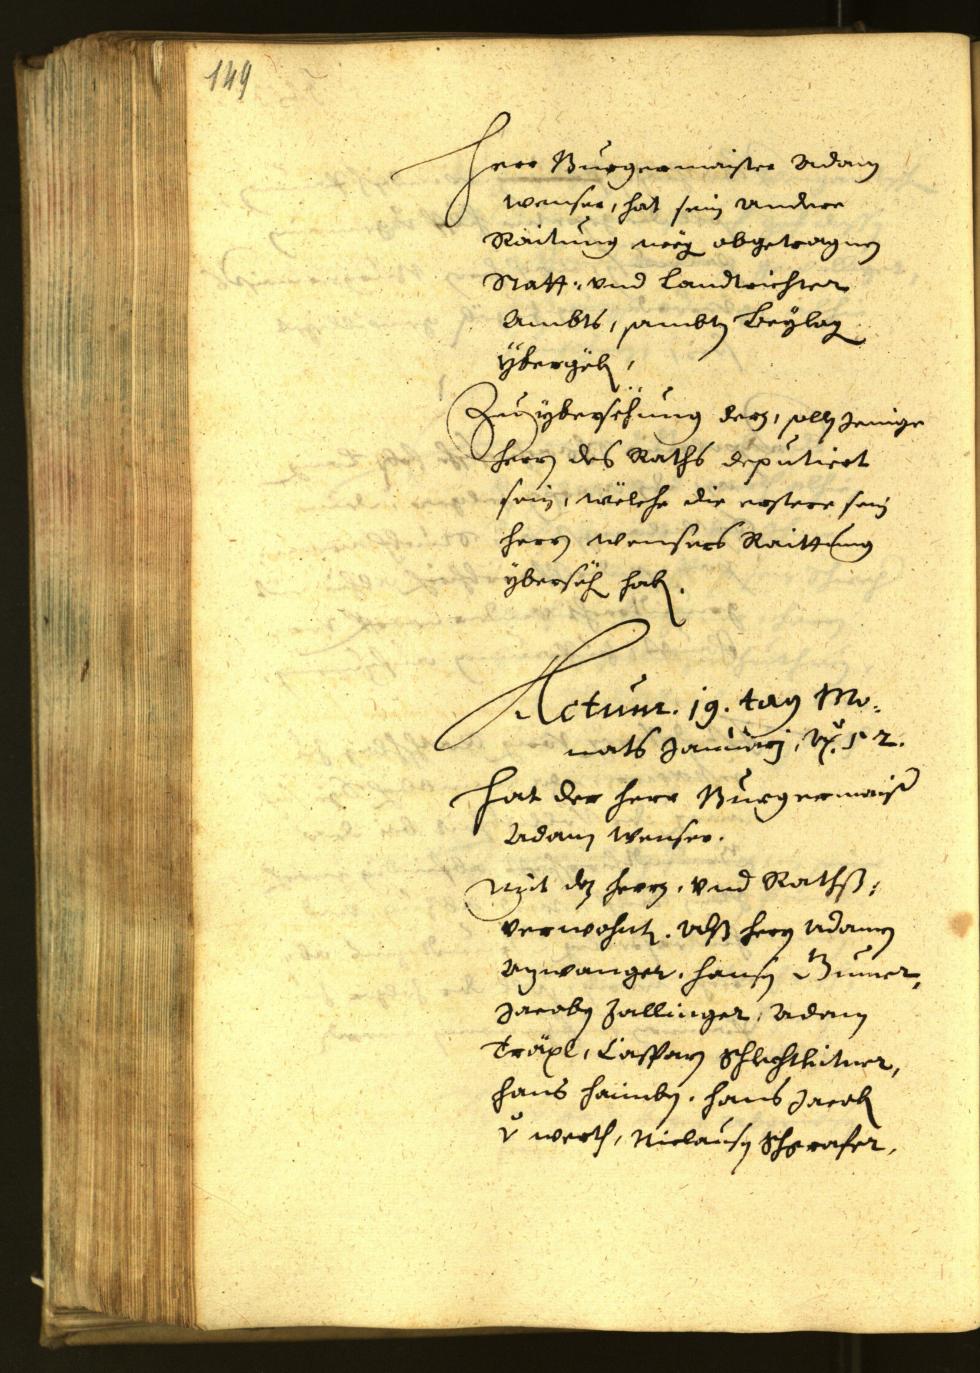 149
Herr Burgermaister Adam
Wenser, hat sein andere
Raitung weg abgetragnen
Statt: vnd Landtrichter
Ambts, sambt Beylag
ÿbergëben,
Zu ÿbersëhung dern, sollen jenige
herrn des Raths deputiert
sein, wëlche die erstere sein
herrn Wensers Raittung
ÿbersëhen haben.
Actum. 19. tag Mo:
nats Januarj, A. 52.
Hat der herr Burgermaister
Adam Wenser.
Mit den herrn, vnd Rathß:
verwohnten. Alß herrn Adamen
Anwanger. Hansen
Jacoben Zallinger, Adam
Träxl, Casparn Schlechtleitner,
Hans Haimbn. Hans Jacob
v Werth, Niclausen Schgrafer,